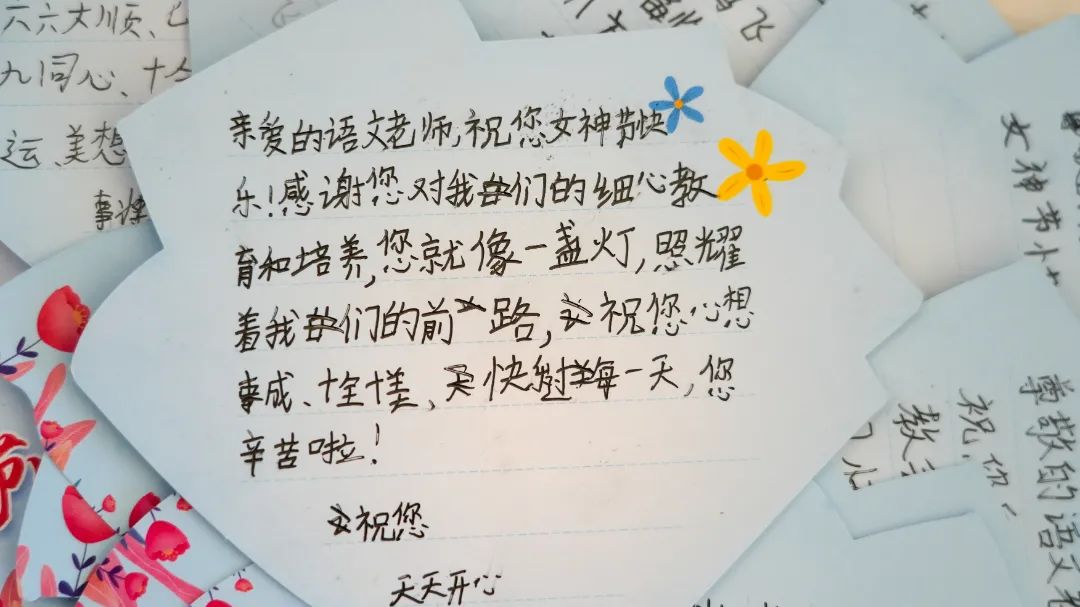 亲爱的语文老师,祝您女神节快
乐!感谢您对我们的细心教
育和培养,您就像一盏灯,照耀
着我们的前路,祝您心想
事成、十全十美、快快过每一天,您
辛苦啦!
祝您
天天开心
六六大顺、
九同心、十全
运、美想
事
飞
女神节
祝你
教
尊敬的语文老